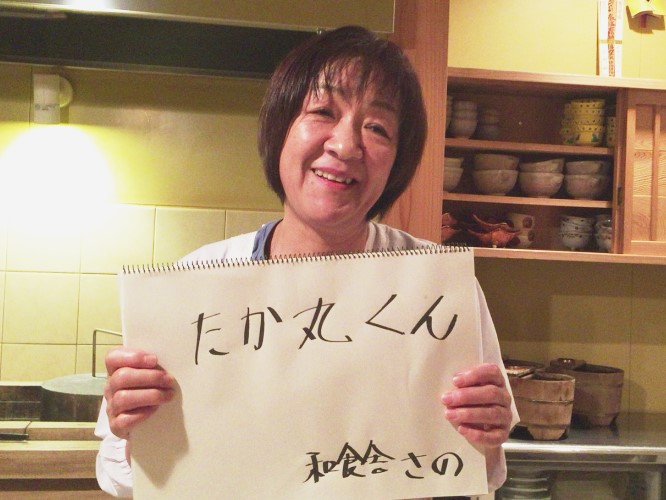 たか丸くん
和食舎さの